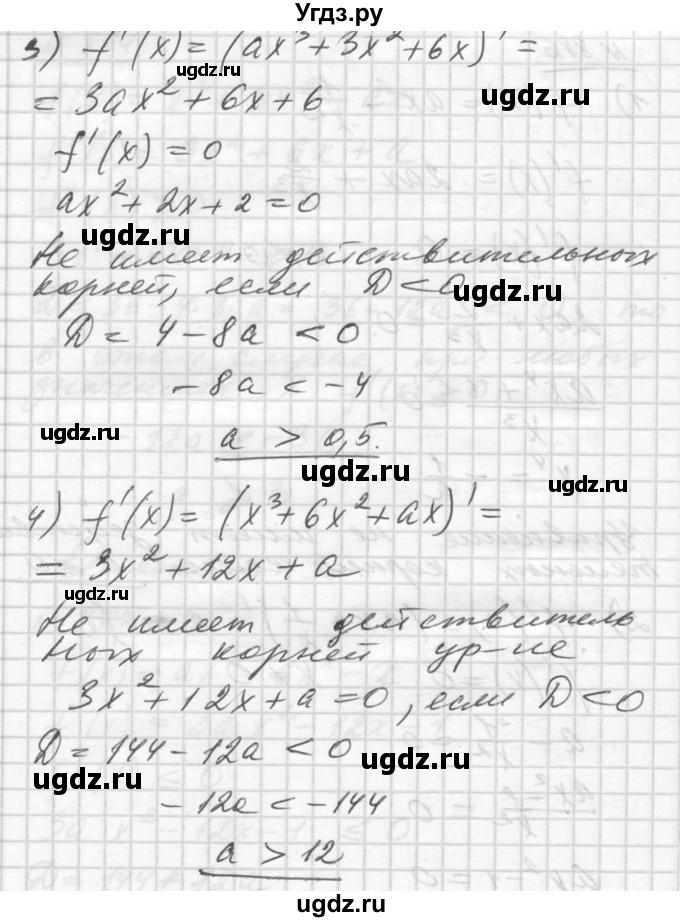 Угдз.ру
3) f'(x) = (ax³ + 3x² + 6x)' =
ugdz.ru
ugdz.ru
= 3ax² + 6x + 6
f'(x) = 0
ax² + 2x + 2 = 0
ugdz.ru
Не имеет действительных
корней, если D < 0
ugdz.ru
D = 4 - 8a < 0
- 8a < - 4
ugdz.ru
a > 0,5.
ugdz.ru
ugdz.ru
4) f'(x) = (x³ + 6x² + ax)' =
= 3x² + 12x + a
ugdz.ru
Не имеет действитель
ных корней ур-ие
3x² + 12x + a = 0, если D < 0
D = 144 - 12a < 0
ugdz.ru
ugdz.ru
- 12a < - 144
a > 12
ugdz.ru